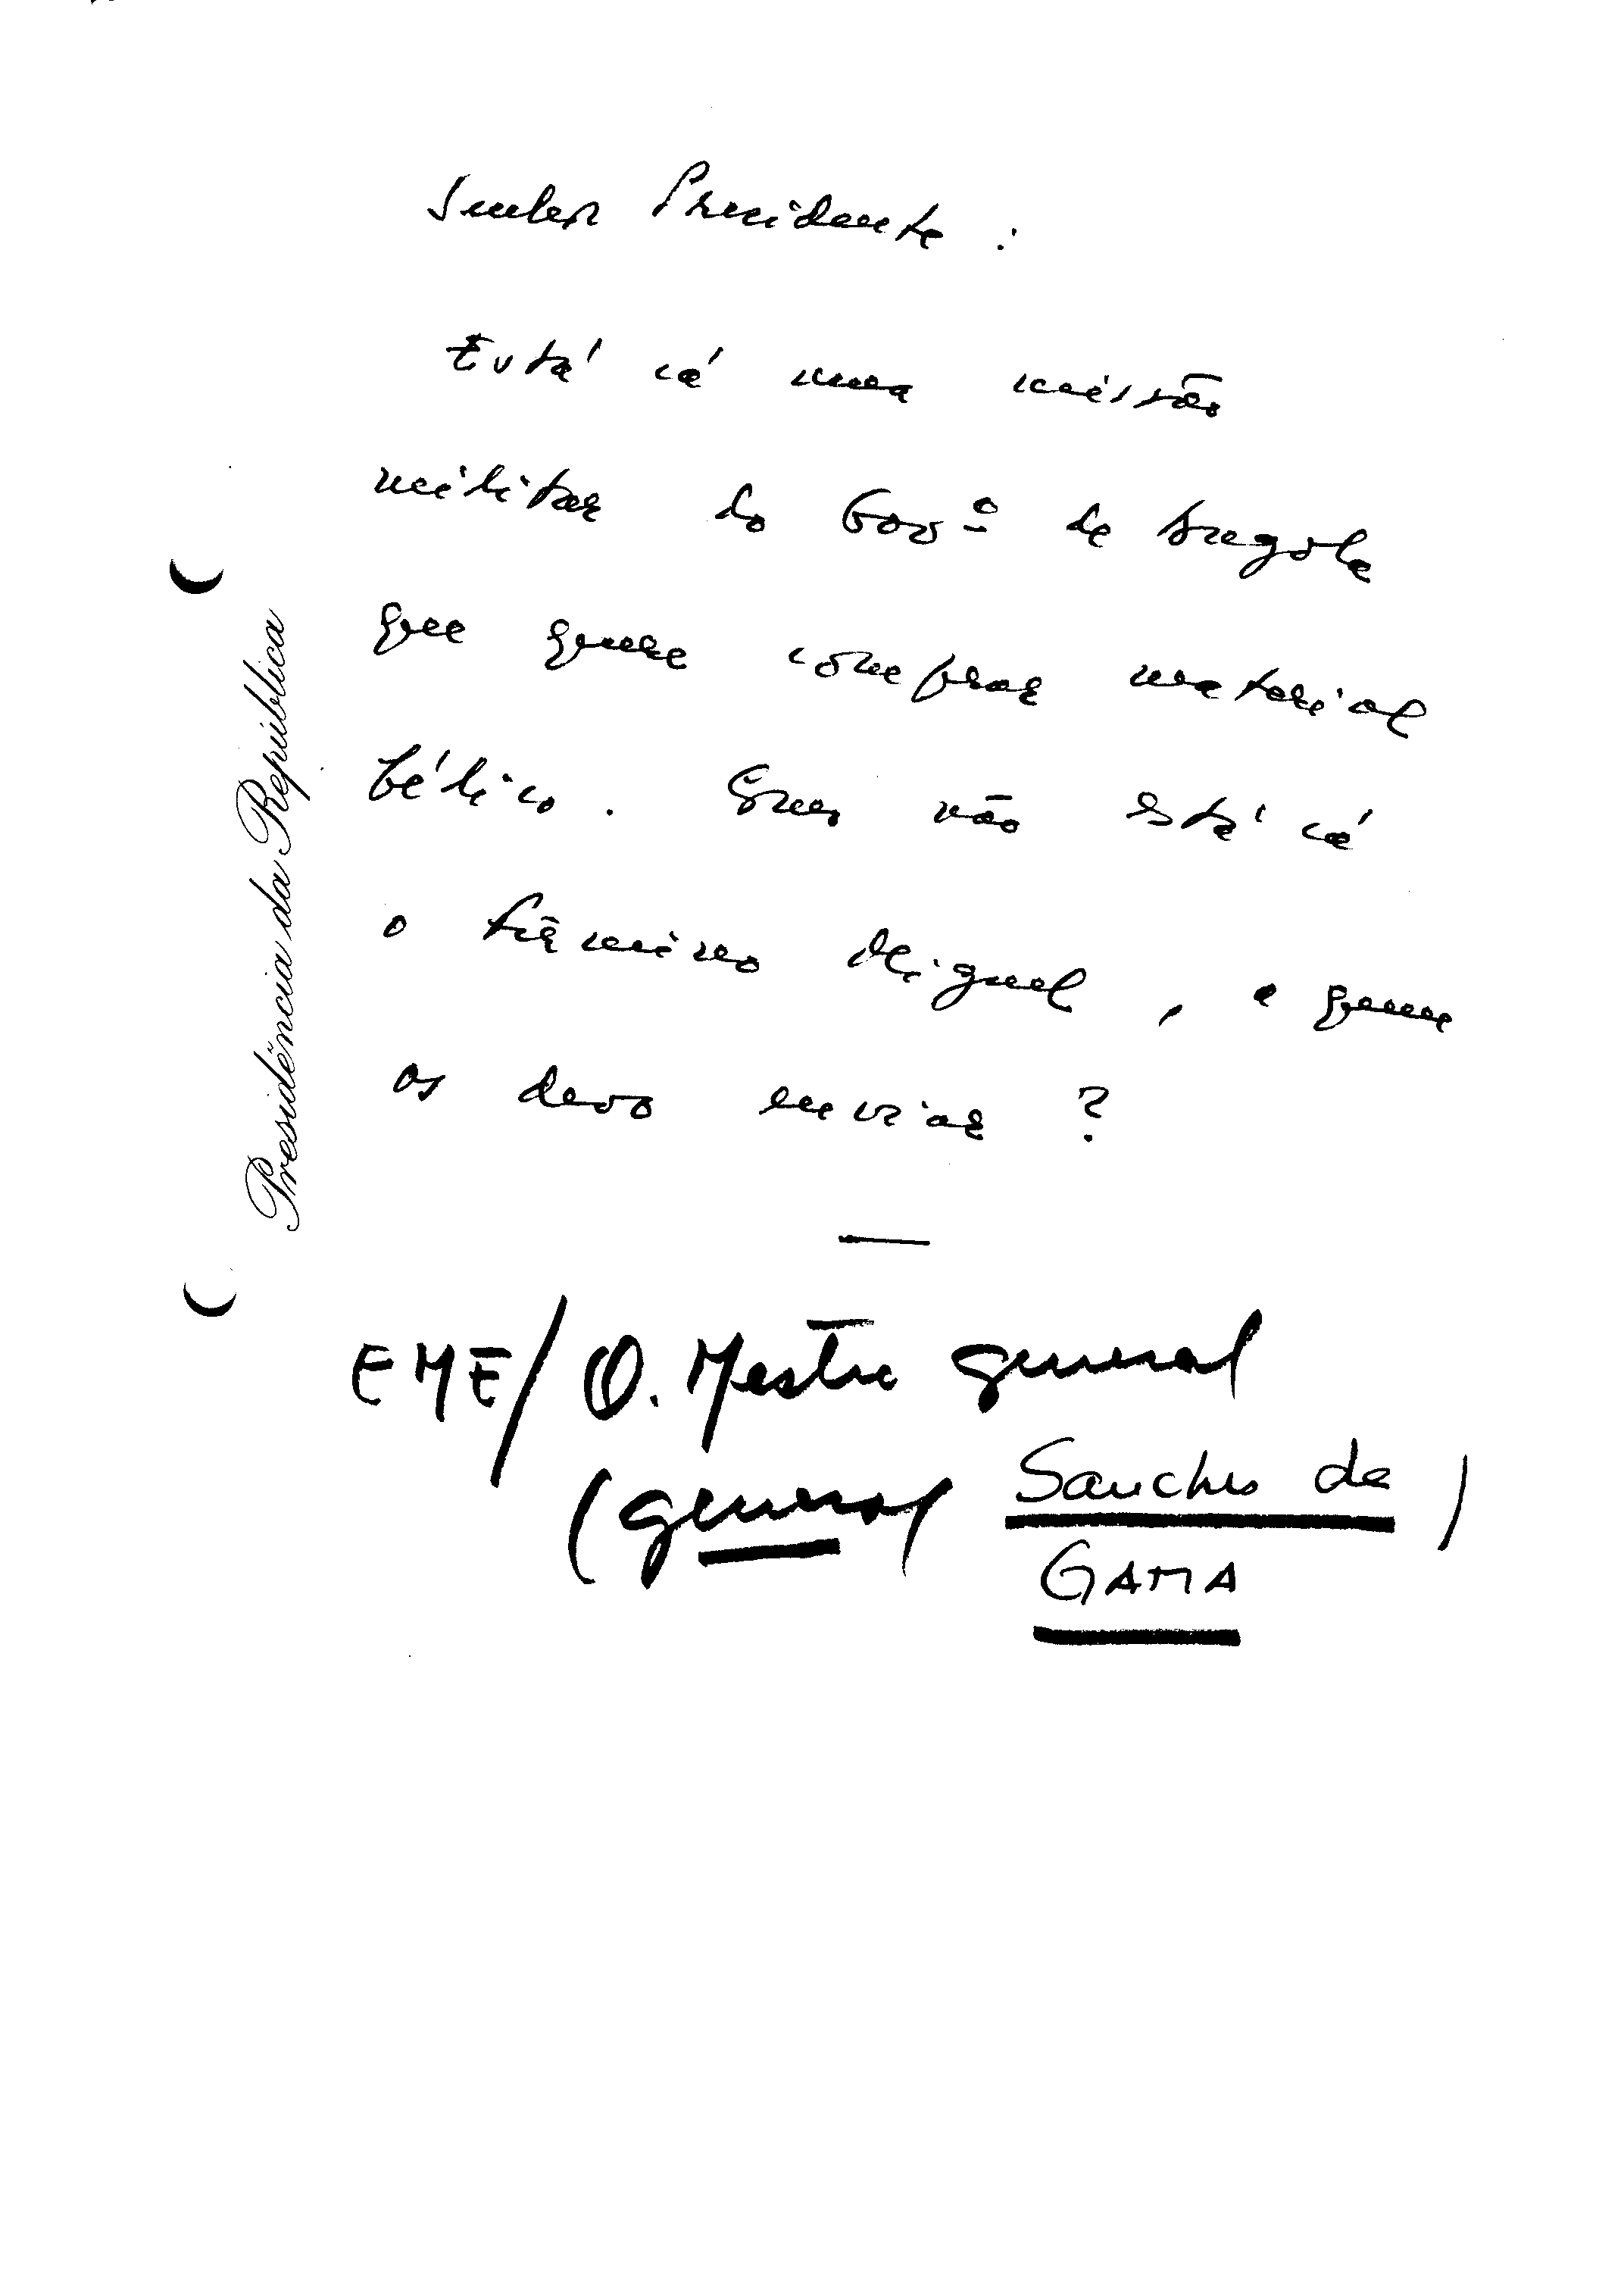 Presidência da República
Senhor Presidente :
Está cá uma missão
militar do Govº de Angola
que quere comprar material
bélico. Como não está cá
o Firmino Miguel, a quem
os devo enviar ?
EME/Q. Mestre general
(general Sanches da)
GAMA